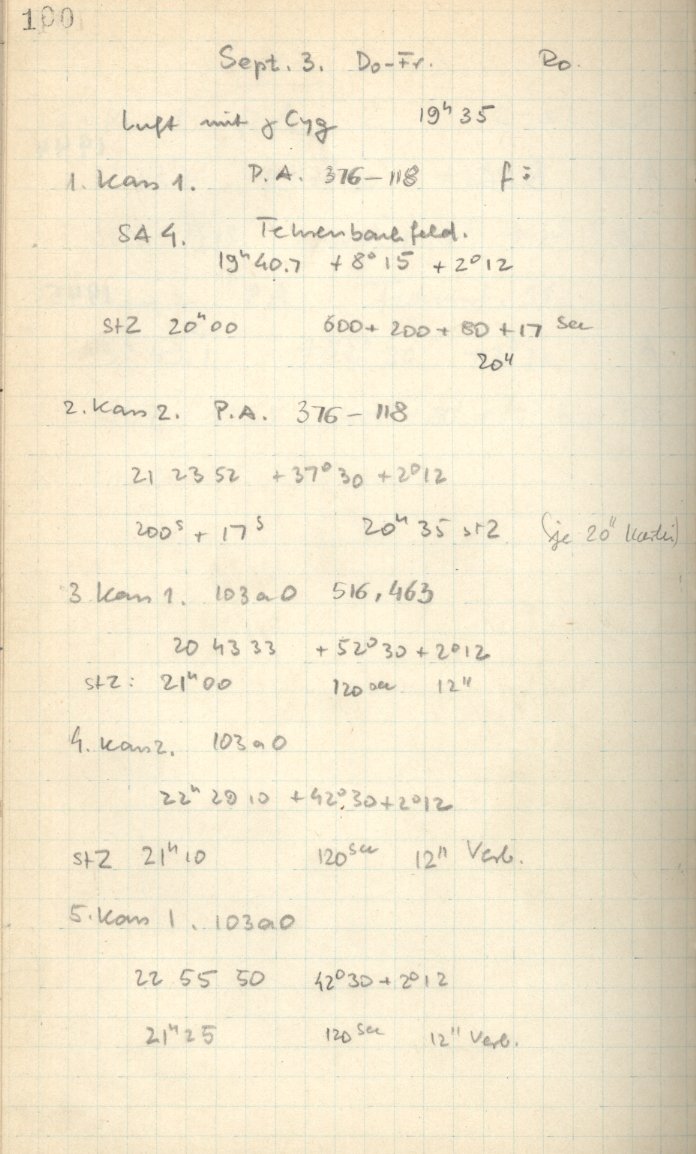 100
Sept. 3. Do-Fr. Ro.
Luft mit γ Cyg 19ʰ 35
1. Kass 1. P.A. 376-118 f:
SA 4. Fehrenbachfeld.
19ʰ 40.7 + 8° 15 + 2° 12
StZ 20ʰ 00 600 + 200 + 80 + 17 Sec
20"
2. Kass 2. P.A. 376-118
21 23 52 + 37° 30 + 2° 12
200ˢ + 17ˢ 20ʰ 35 StZ (je 20"
3 Kass 1. 103a0 516, 463
20 43 33 + 52° 30 + 2° 12
StZ: 21ʰ 00 120 sec 12"
4. Kass 2. 103a0
22ʰ 29 10 + 42° 30 + 2° 12
StZ 21ʰ 10 120 sec 12" Verb.
5. Kass 1. 103a0
22 55 50 42° 30 + 2° 12
21ʰ 25 120 Sec 12" Verb.